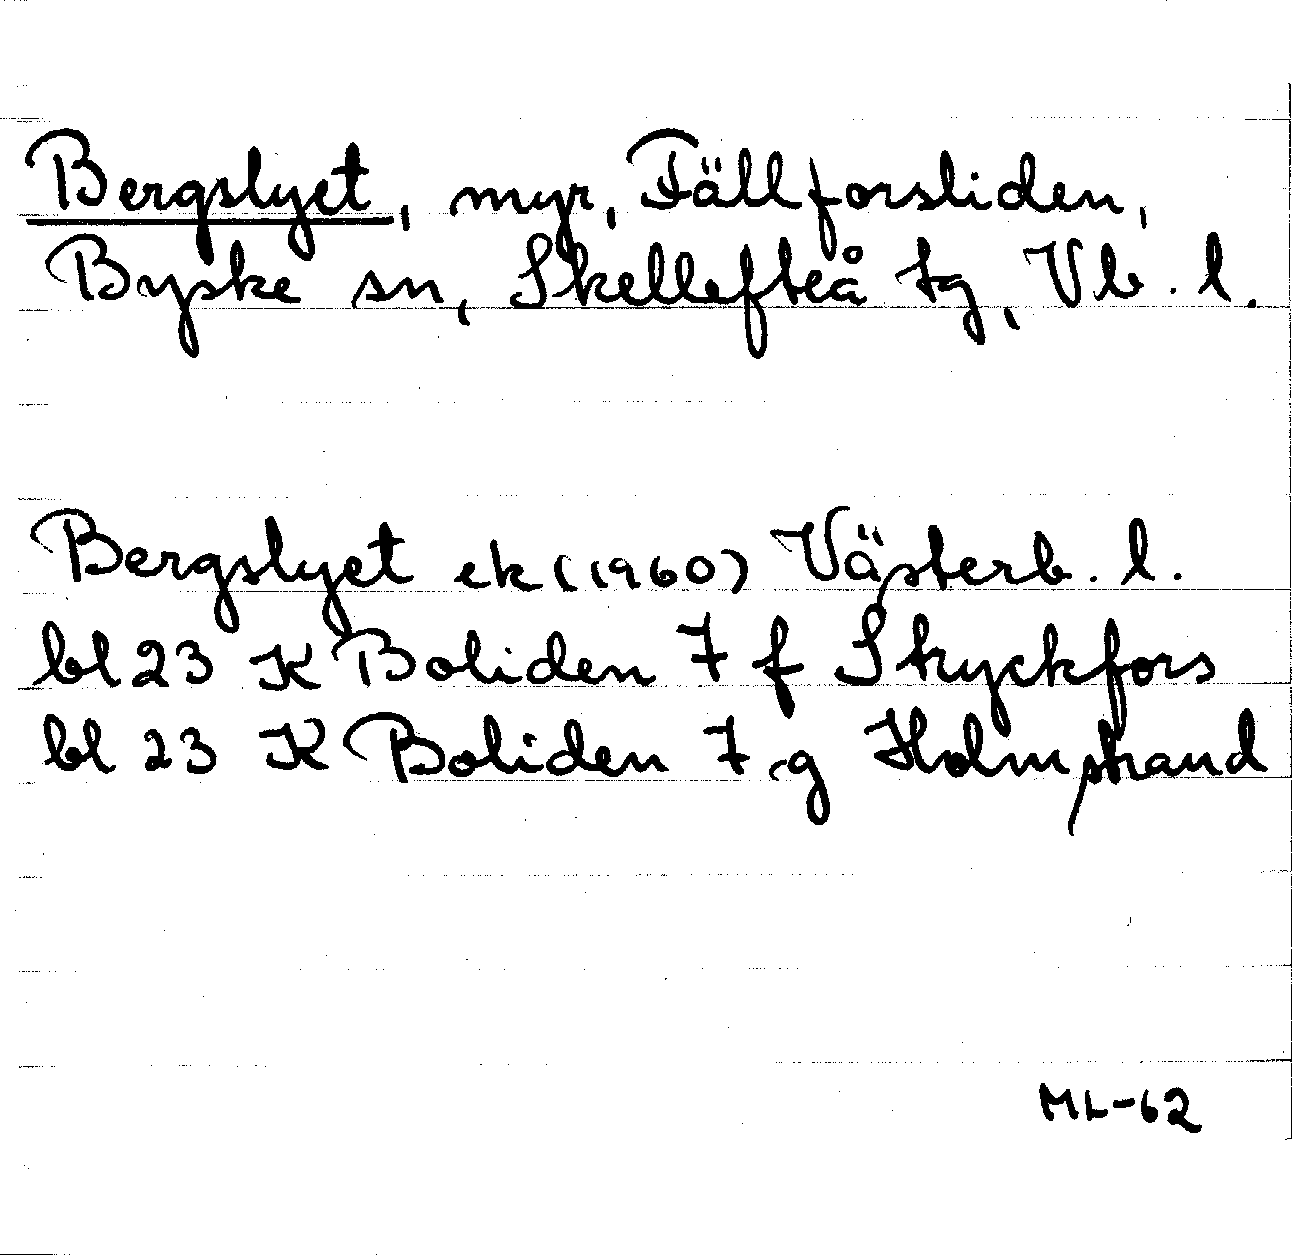 Bergslyet, myr, Fällforsliden,
Byske sn, Skellefteå tg, Vb. l.
Bergslyet ek (1960) Västerb. l.
bl 23 K Boliden 7 f Stryckfors
bl 23 K Boliden 7 g Holmstrand
ML-62